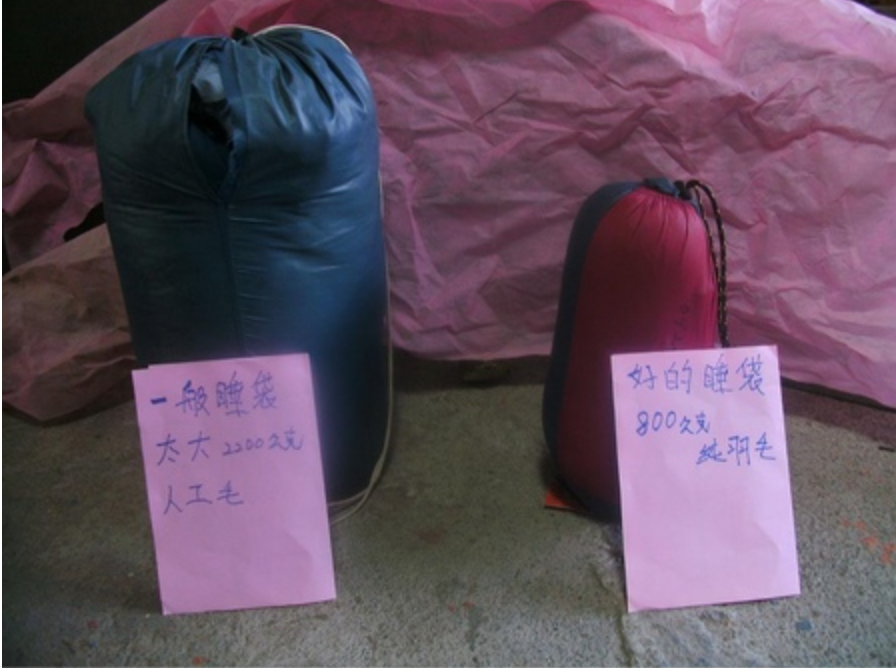 一般睡袋
太大 2200公克
人工毛
好的睡袋
800公克
純羽毛